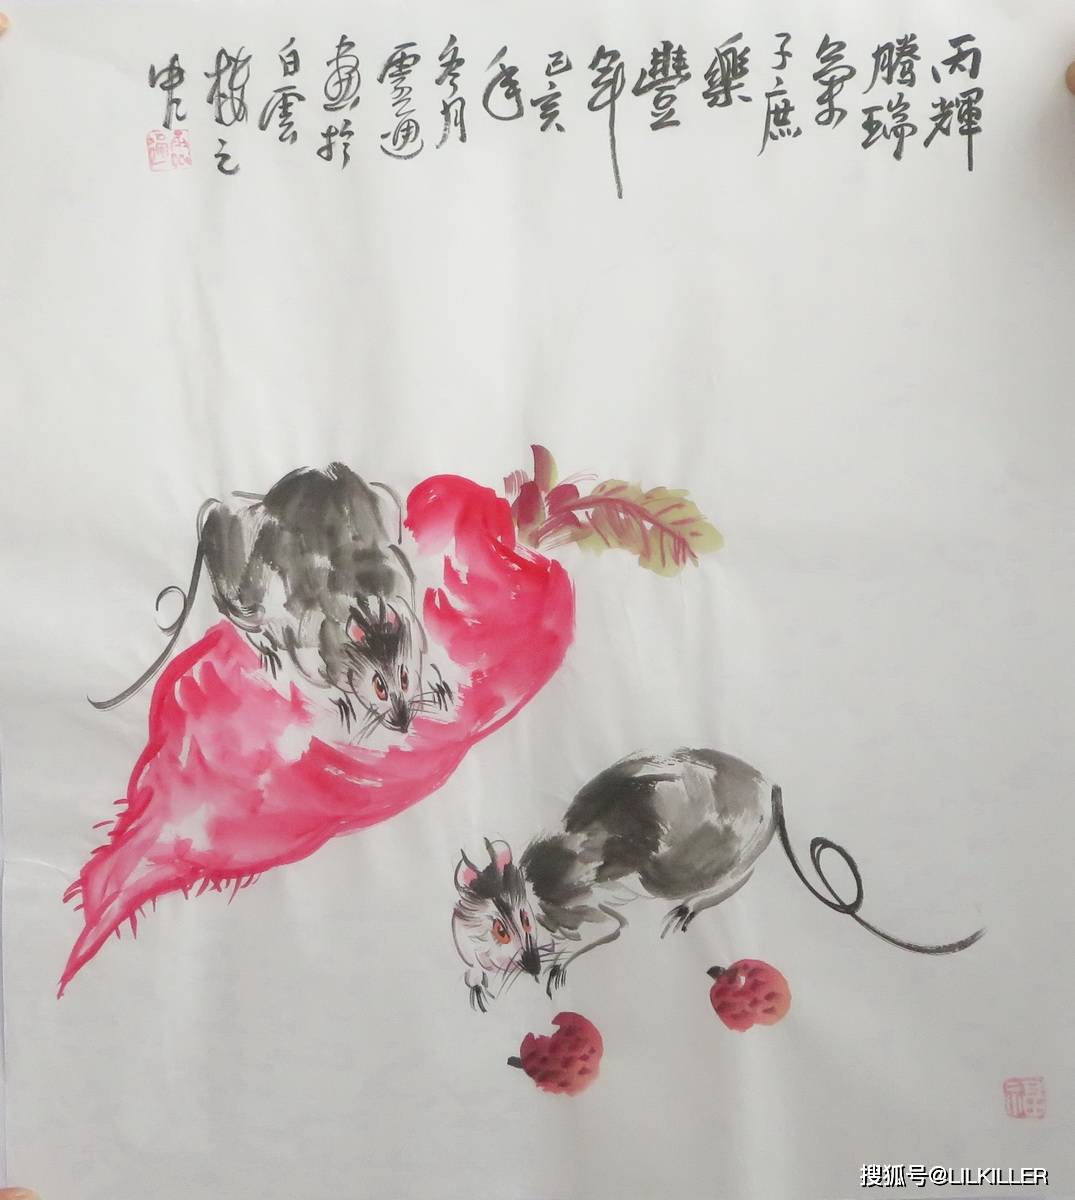 丙輝
騰瑞
氣
子庶
樂
豐
年
己亥
年
冬月
雲通
畫於
白雲
樓之
中
福
搜狐号@LILKILLER